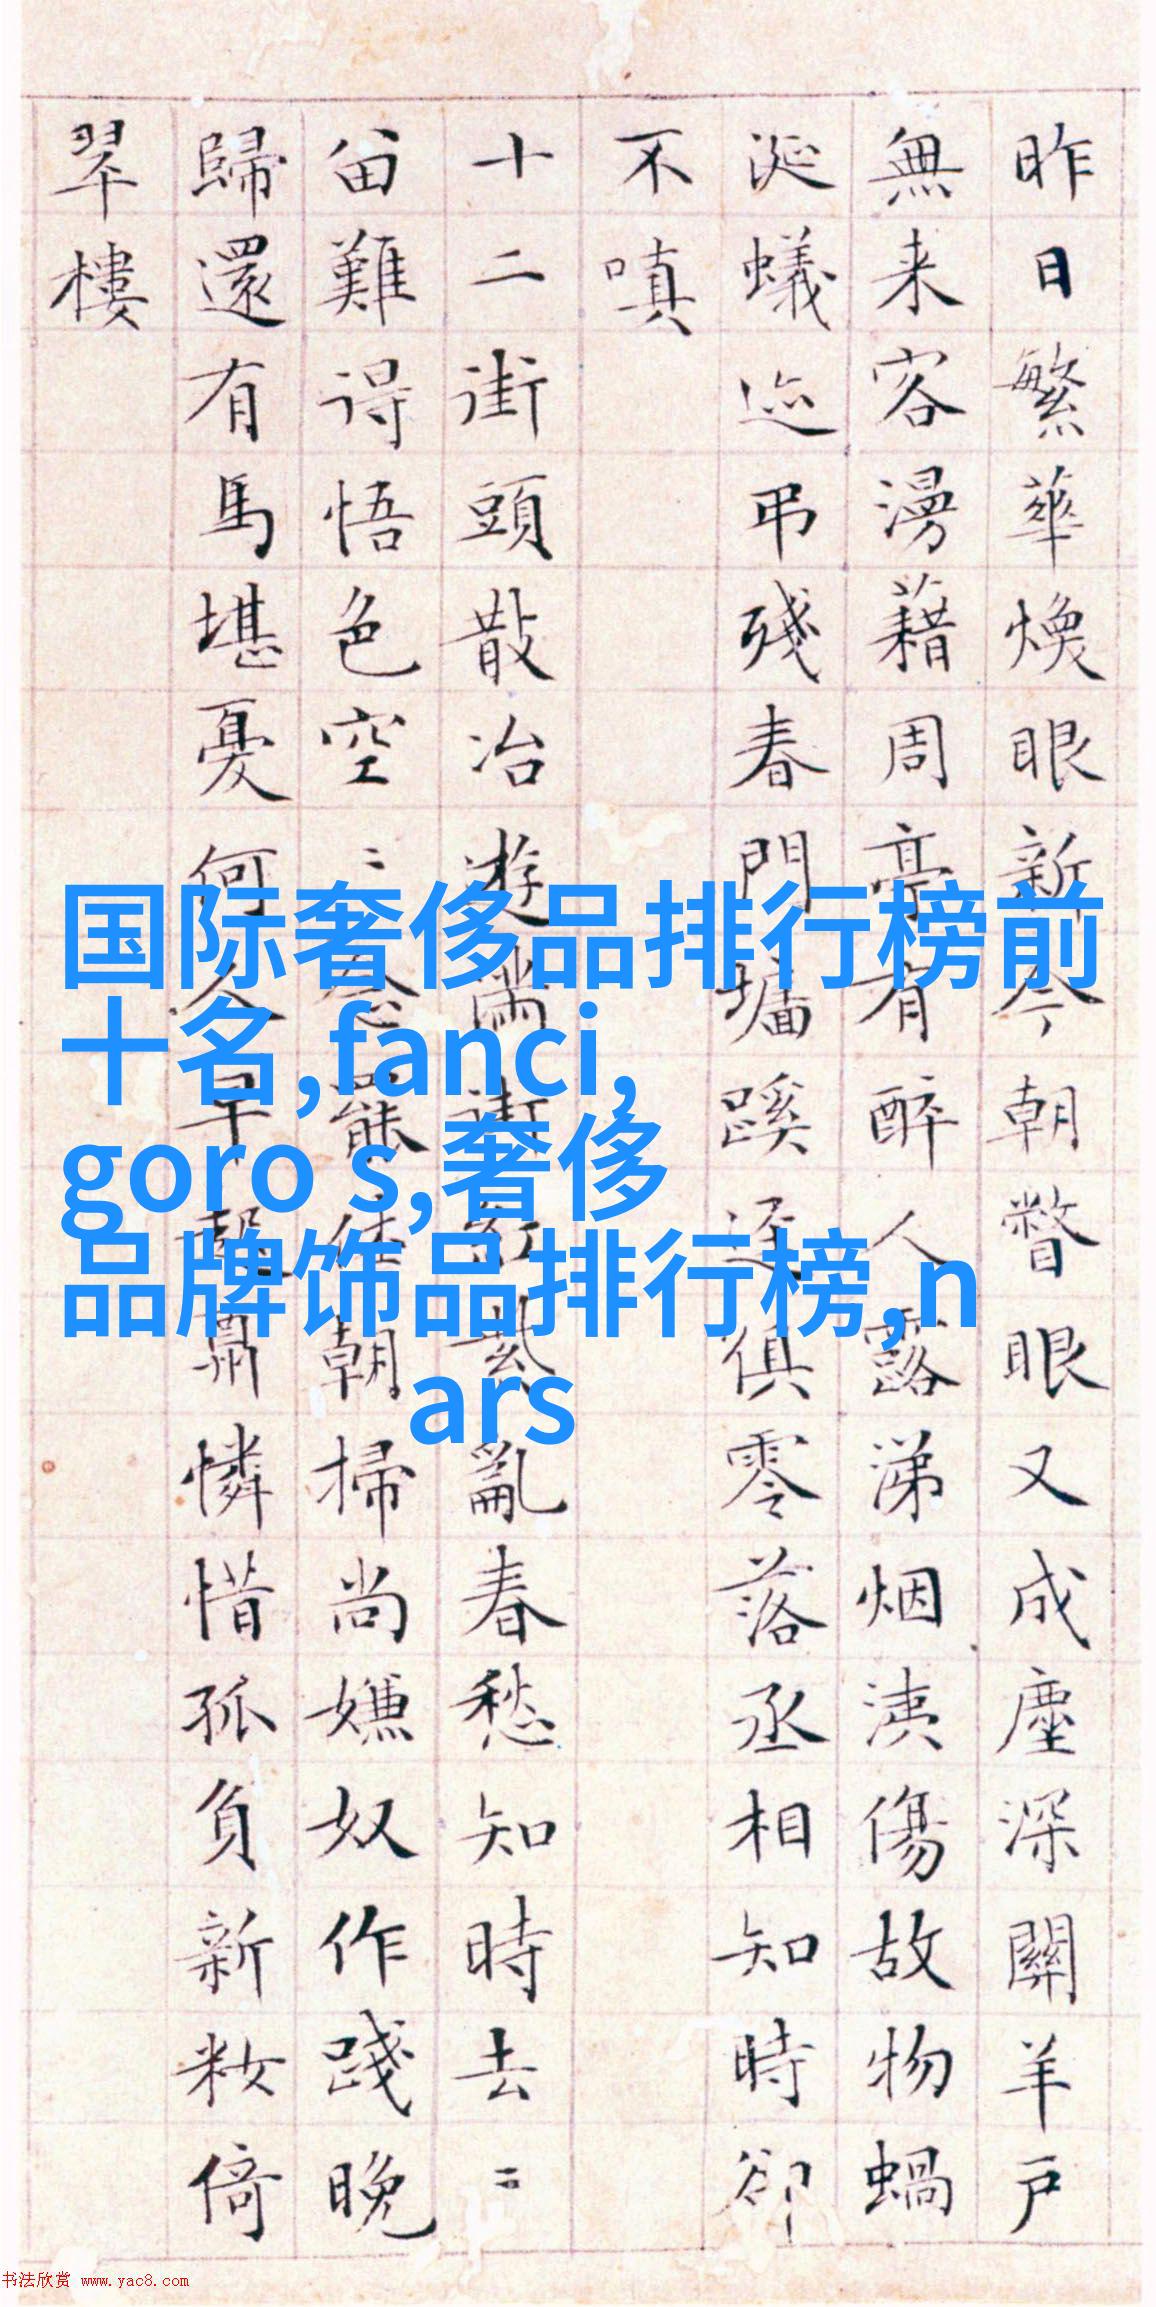 昨日繁華煥眼新今朝瞥眼又成塵深關羊戶
無来客漫藉周亭有醉人露涕烟洟傷故物蝸
涎蟻迹弔殘春門墻蹊逕俱零落丞相知時卻
不嗔
十二街頭散冶遊滿街紅紫亂春愁知時去〻
留難得悟色空〻念罷休朝掃尚嫌奴作踐晚
歸還有馬堪憂何人早起肩憐惜孤負新妝倚
翠樓
国际奢侈品排行榜前
十名,fanci,
goro s,奢侈
品牌饰品排行榜,n
ars
书法欣赏 www.yac8.com